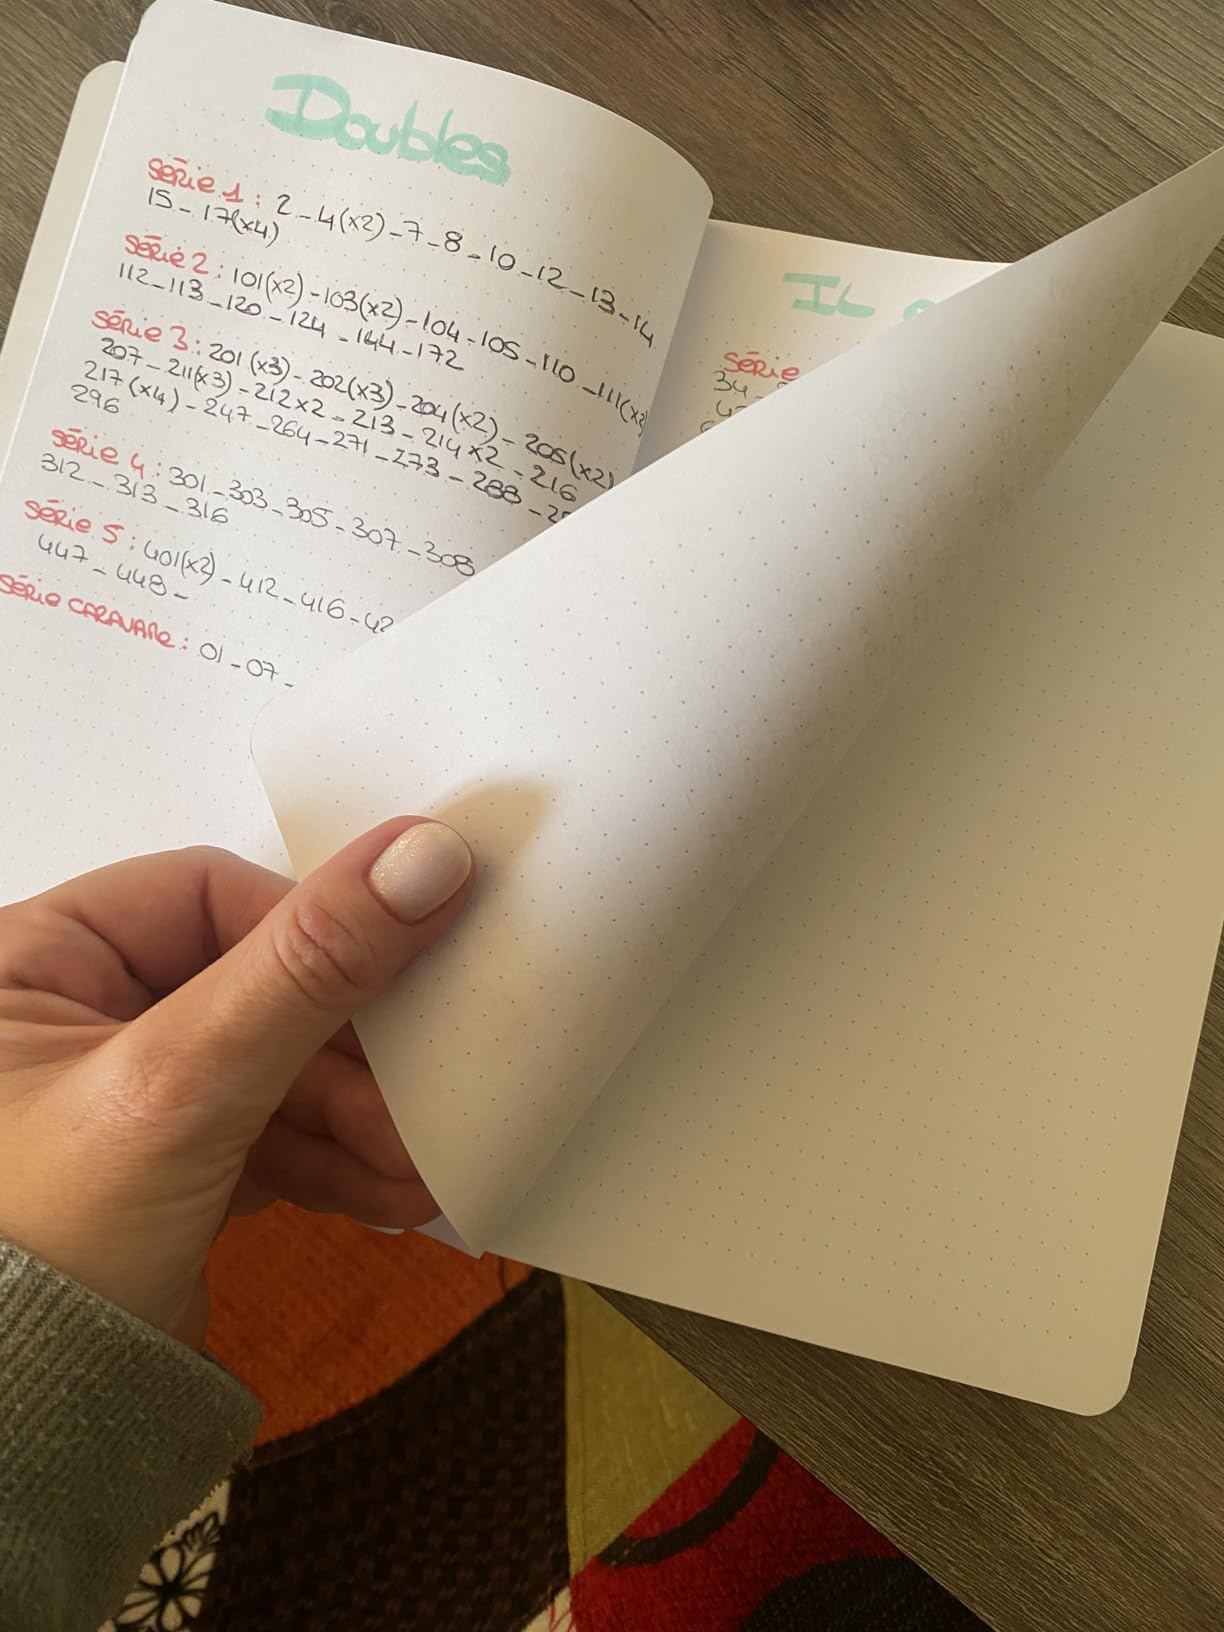 Doubles
Série 1 : 2 - 4(x2) - 7 - 8 - 10 - 12 - 13 - 14
15 - 17(x4)
Série 2 : 101(x2) - 103(x2) - 104 - 105 - 110 - 111(x2)
112 - 113 - 120 - 124 - 144 - 172
Série 3 : 201(x3) - 202(x3) - 204(x2) - 205(x2)
207 - 211(x3) - 212x2 - 213 - 214x2 - 216
217(x4) - 247 - 264 - 271 - 273 - 288 -
296
Série 4 : 301 - 303 - 305 - 307 - 308
312 - 313 - 316
Série 5 : 401(x2) - 412 - 416 - 42
447 - 448 -
Série CARAVANE : 01 - 07 -
IL
Série
34 -